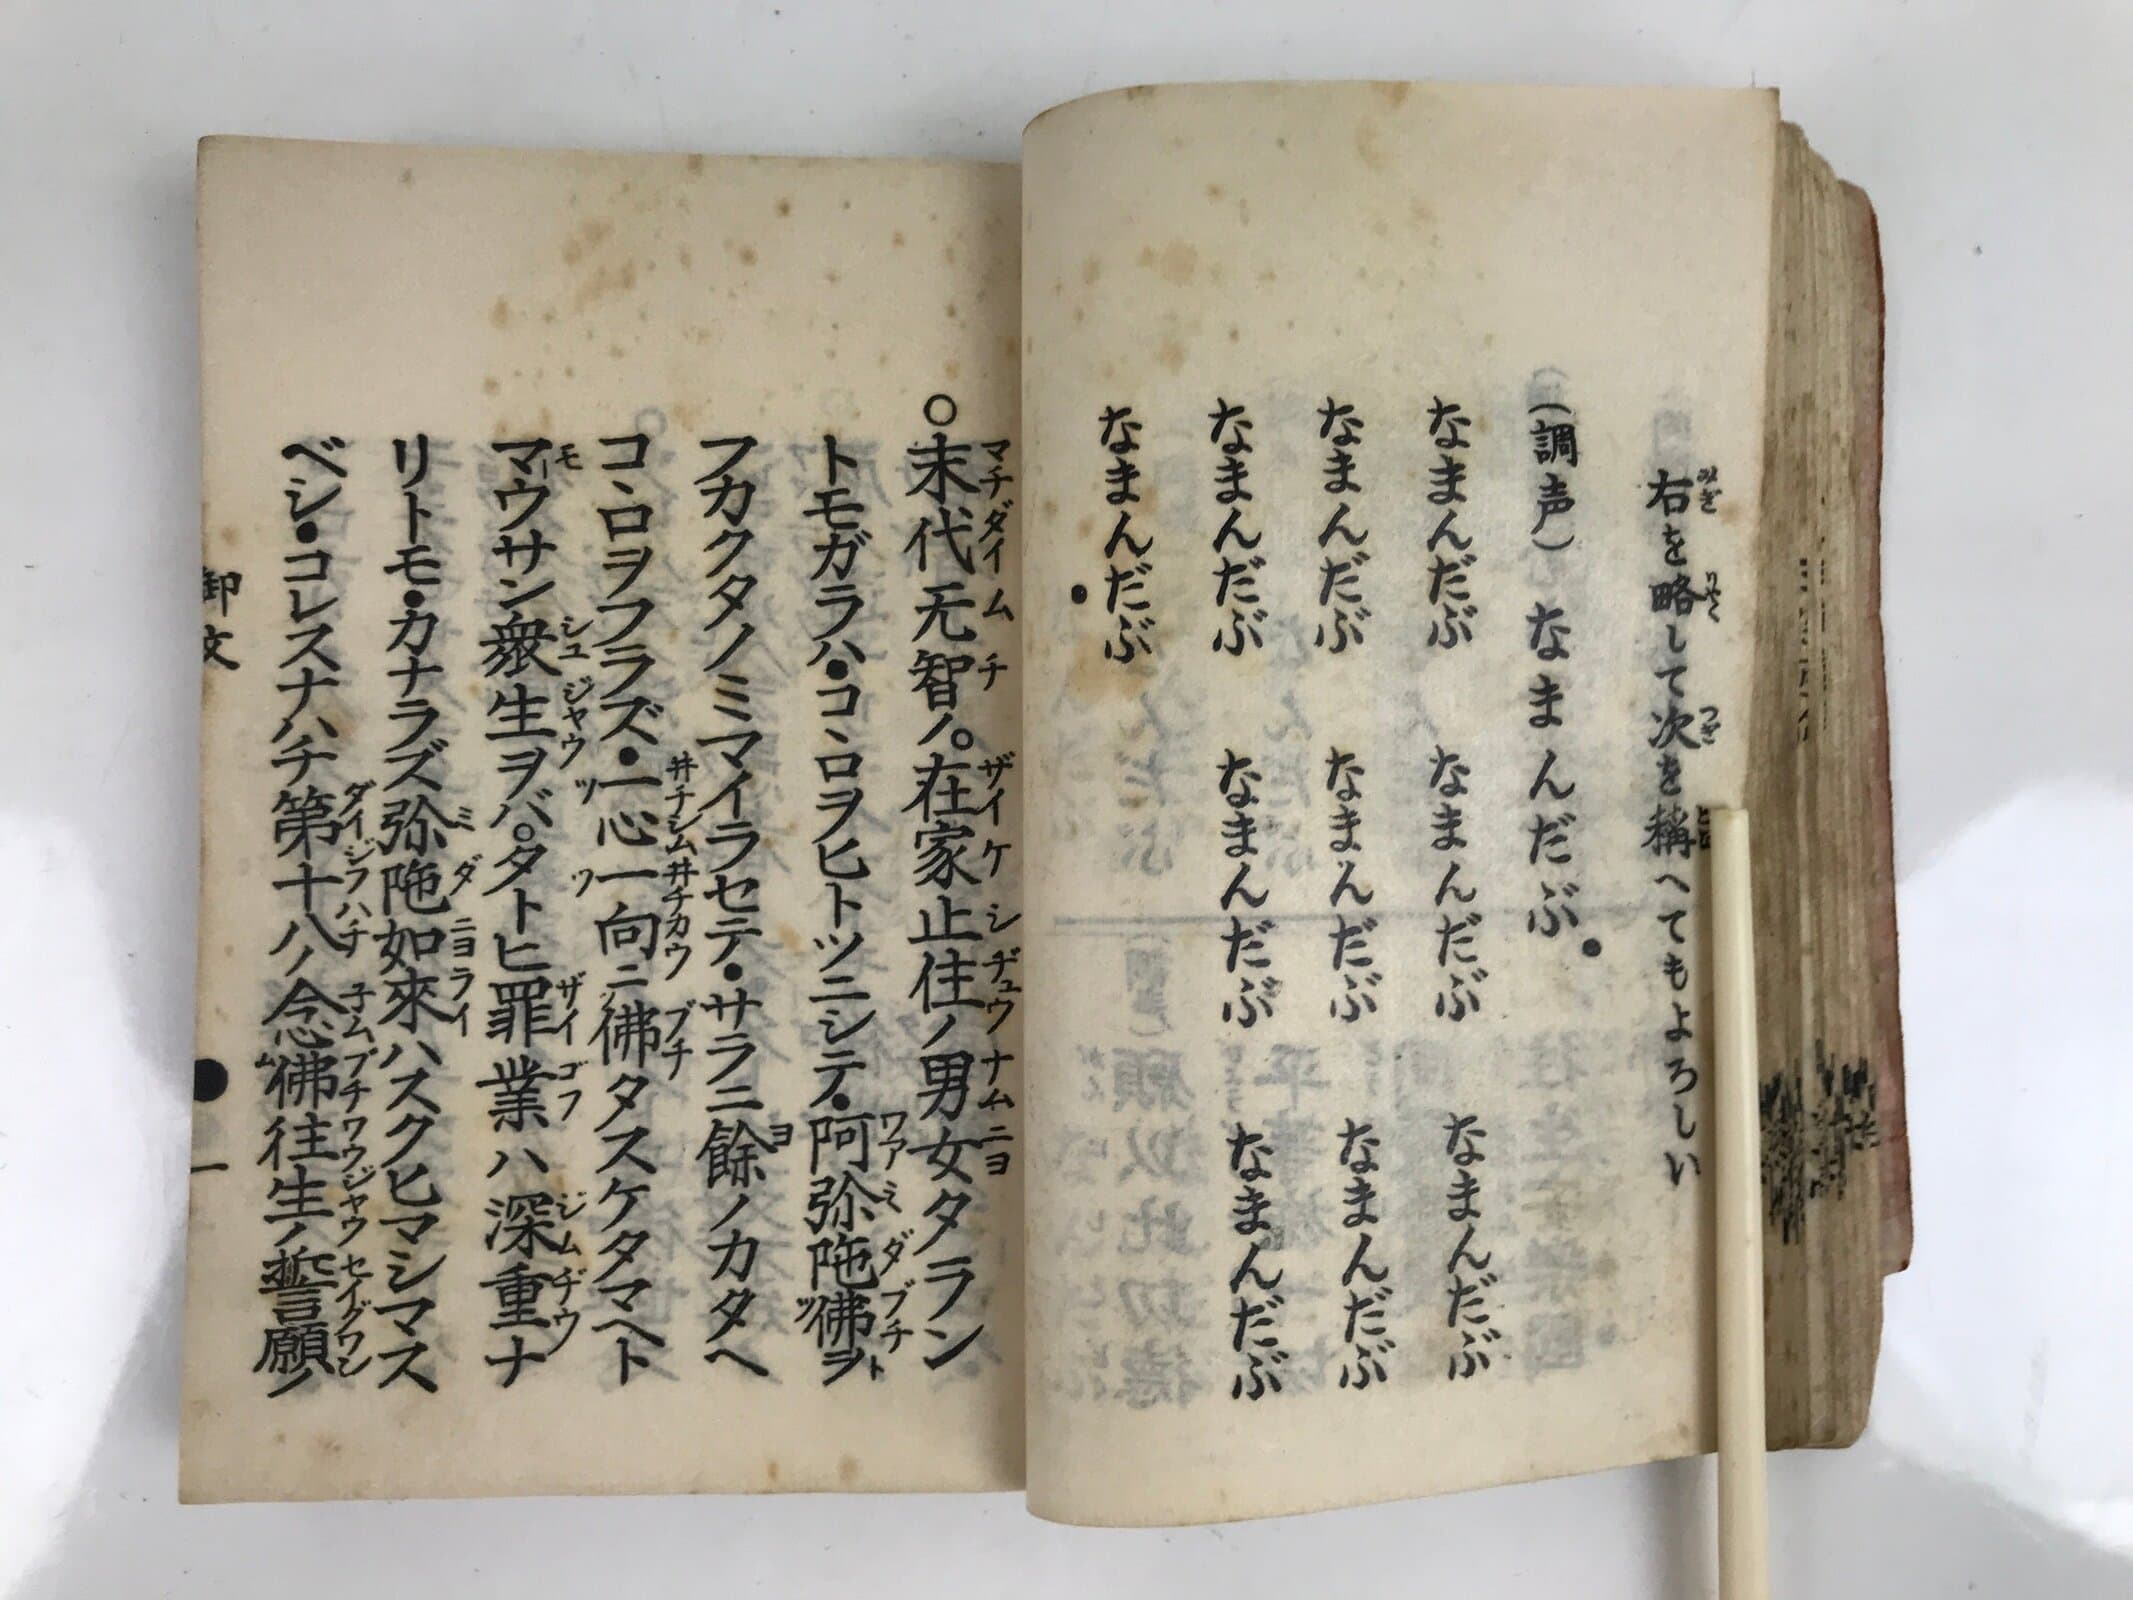 右を略して次を稱へてもよろしい
(調声)なまんだぶ●
なまんだぶ なまんだぶ なまんだぶ
なまんだぶ なまんだぶ なまんだぶ
なまんだぶ なまんだぶ なまんだぶ
なまんだぶ●
○末代无智ノ○在家止住ノ男女タラン
トモガラハ●コヽロヲヒトツニシテ●阿弥陁佛ヲ
フカクタノミマイラセテ●サラニ餘ノカタヘ
コヽロヲフラズ●一心一向ニ佛タスケタマヘト
マウサン衆生ヲバ○タトヒ罪業ハ深重ナ
リトモ●カナラズ弥陁如來ハスクヒマシマス
ベシ●コレスナハチ第十八ノ念佛往生ノ誓願ノ
御文 ● 一